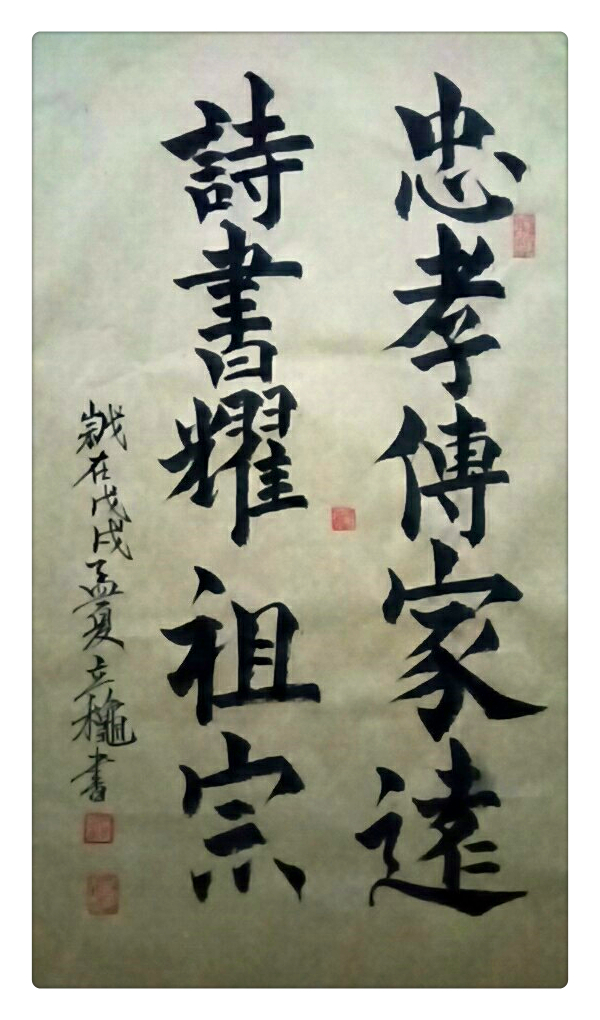 忠孝傳家遠
詩書耀祖宗
歲在戊戌孟夏立龝書